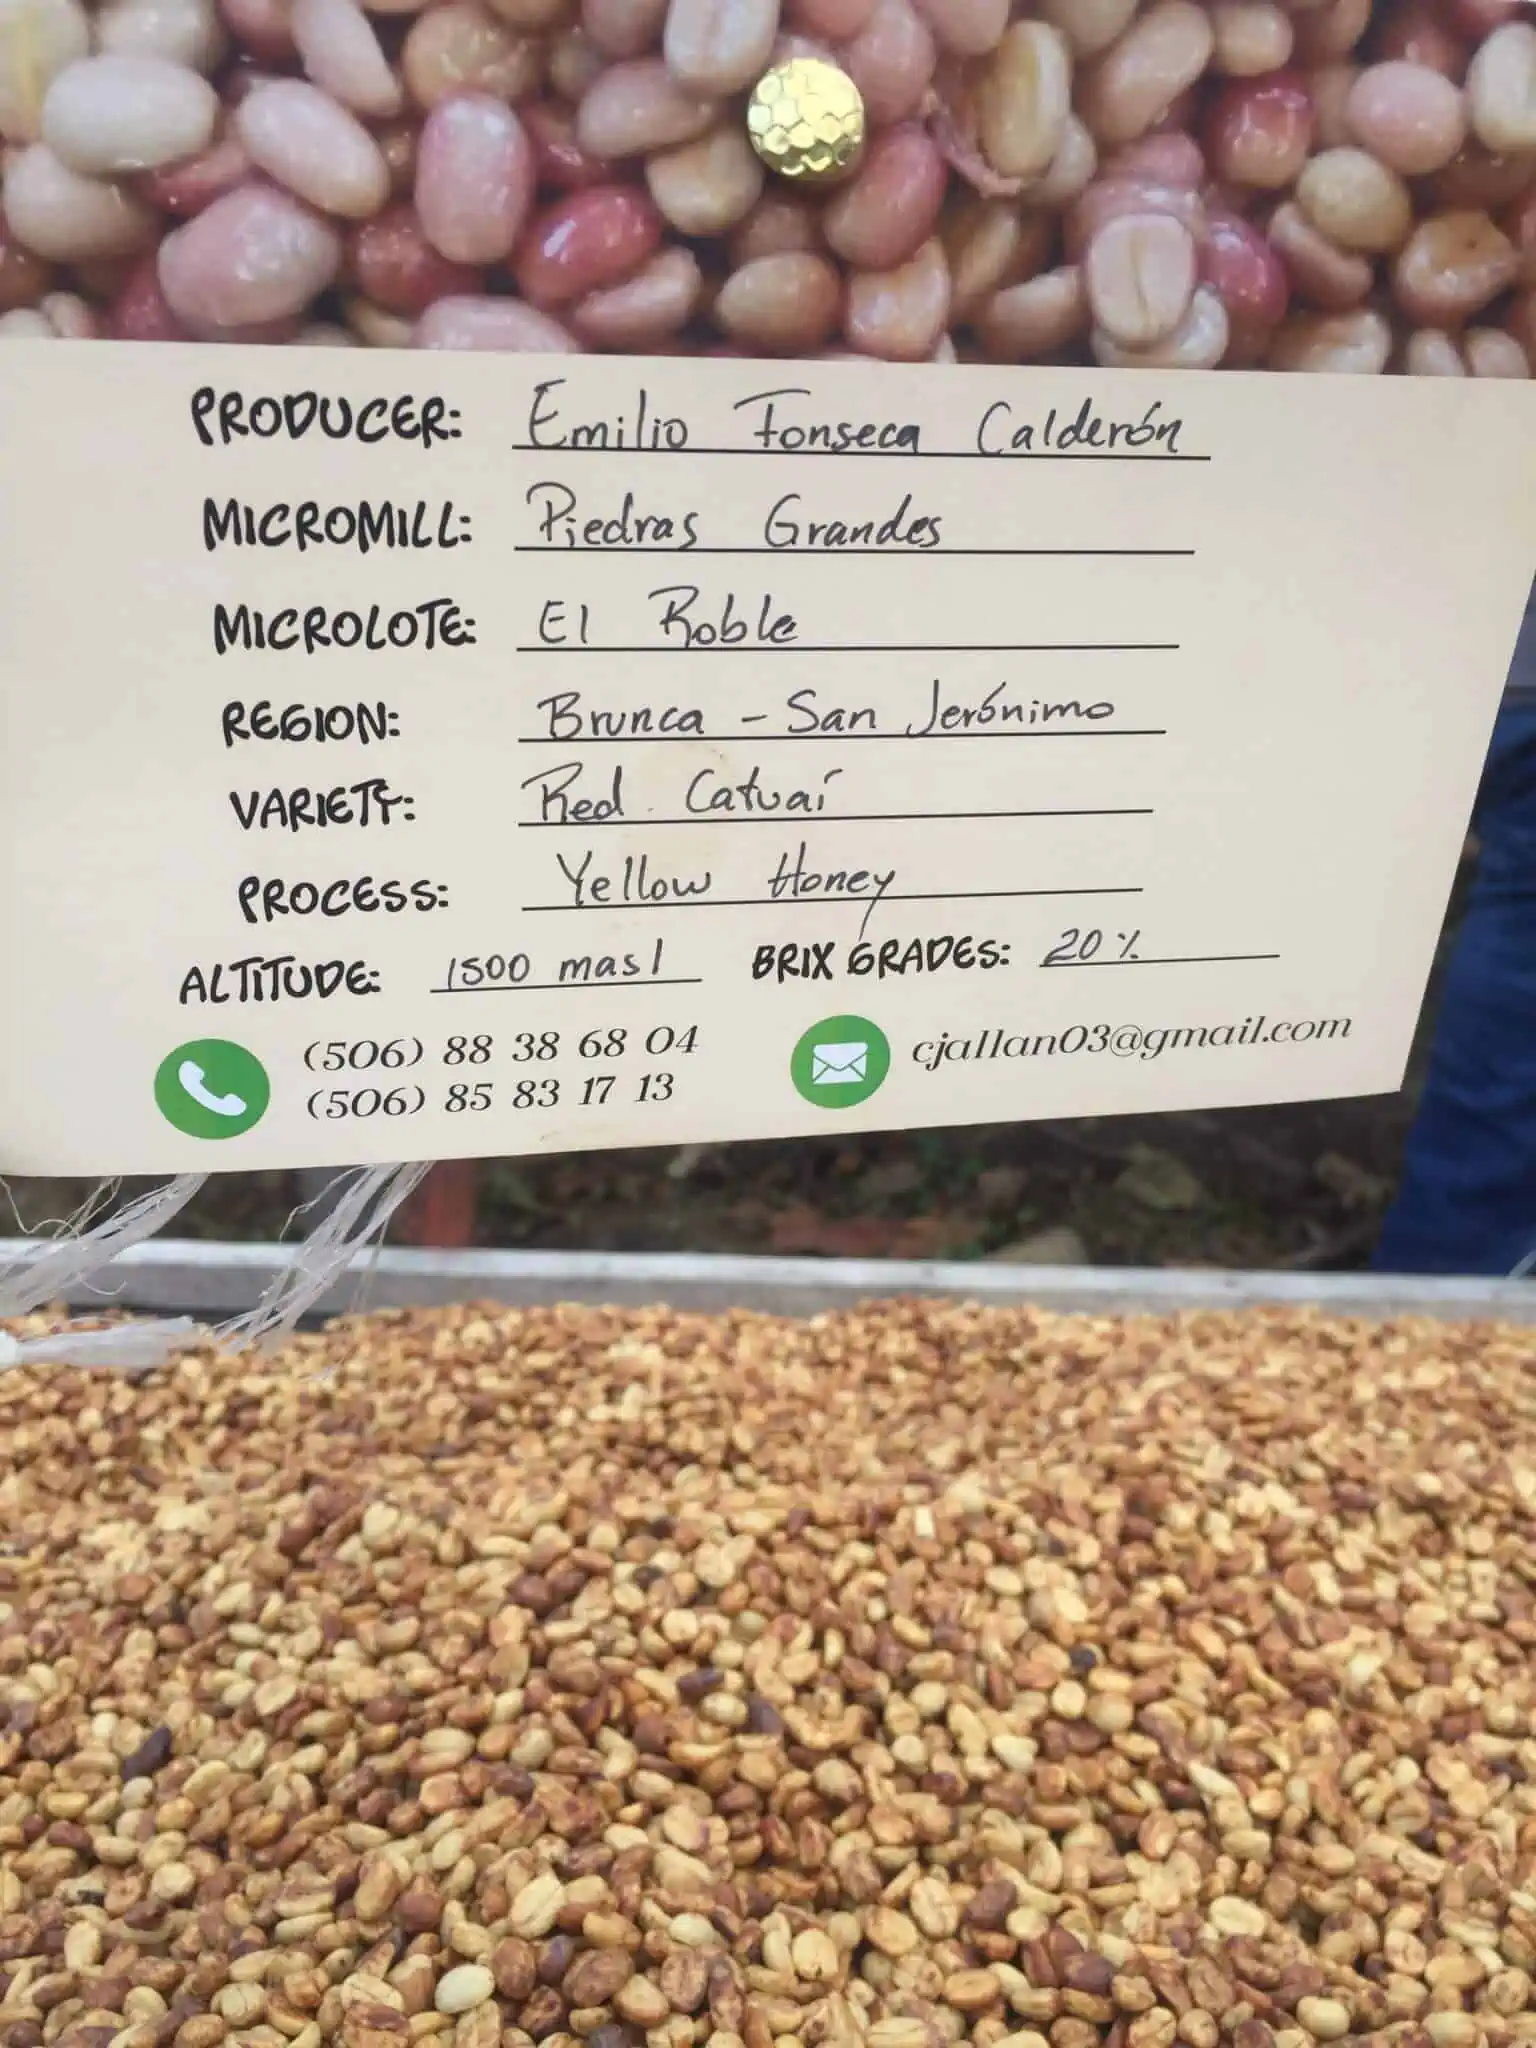 PRODUCER: Emilio Fonseca Calderón
MICROMILL: Piedras Grandes
MICROLOTE: El Roble
REGION: Brunca - San Jerónimo
VARIETY: Red Catuaí
PROCESS: Yellow Honey
ALTITUDE: 1500 masl BRIX GRADES: 20%
(506) 88 38 68 04 cjallan03@gmail.com
(506) 85 83 17 13